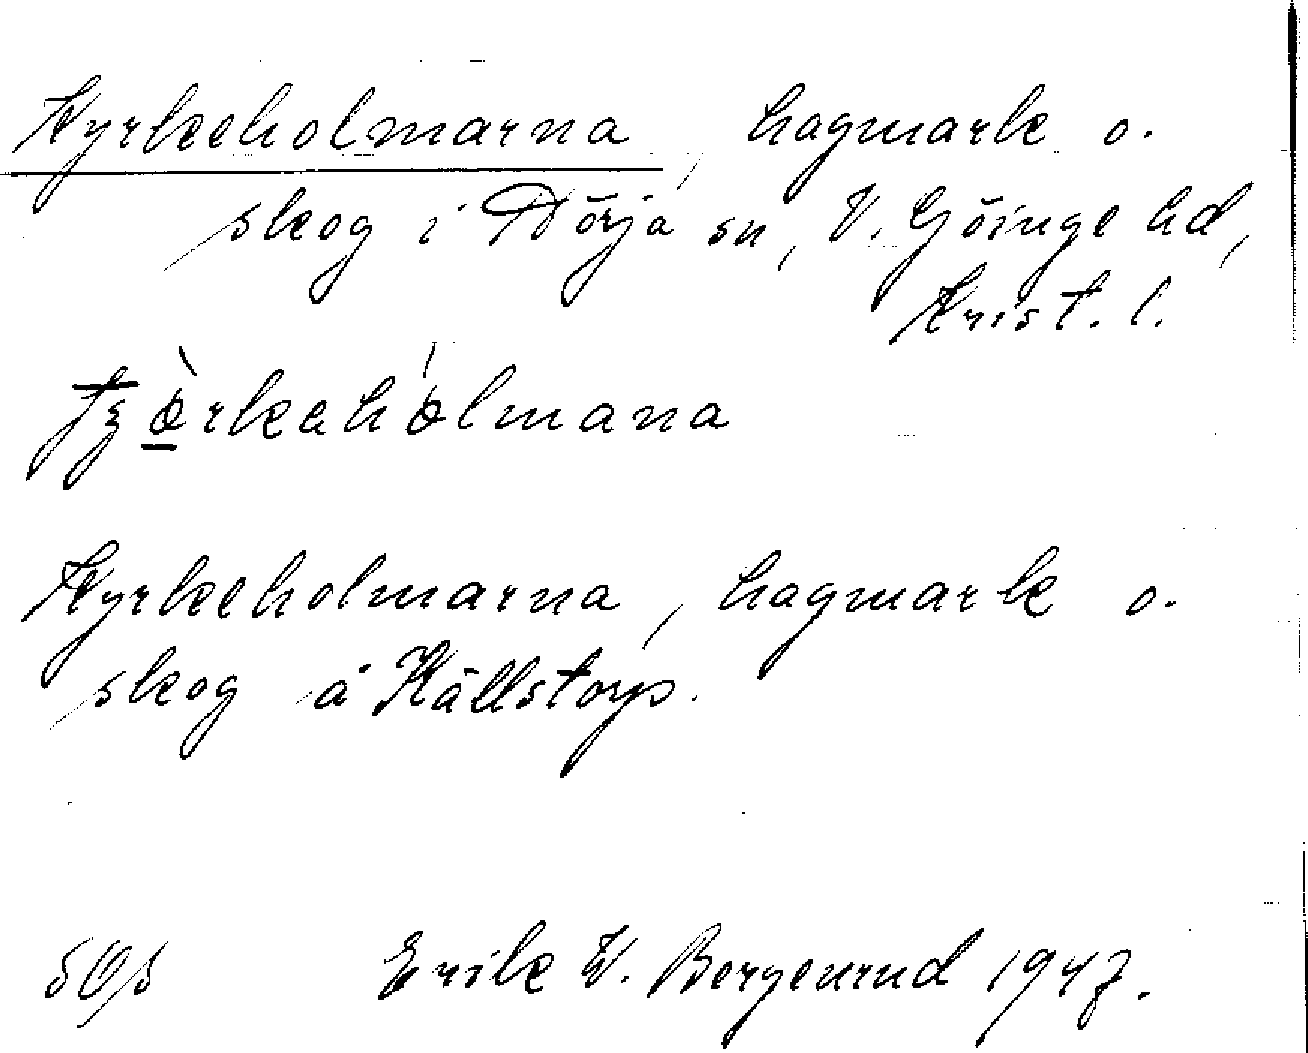 Kyrkeholmarna, hagmark o.
skog i Nörja sn, V. Göinge hd,
Krist. l.
Kyrkeholmarna, hagmark o.
skog å Källstorp.
Erik W. Bergenrud 1947.